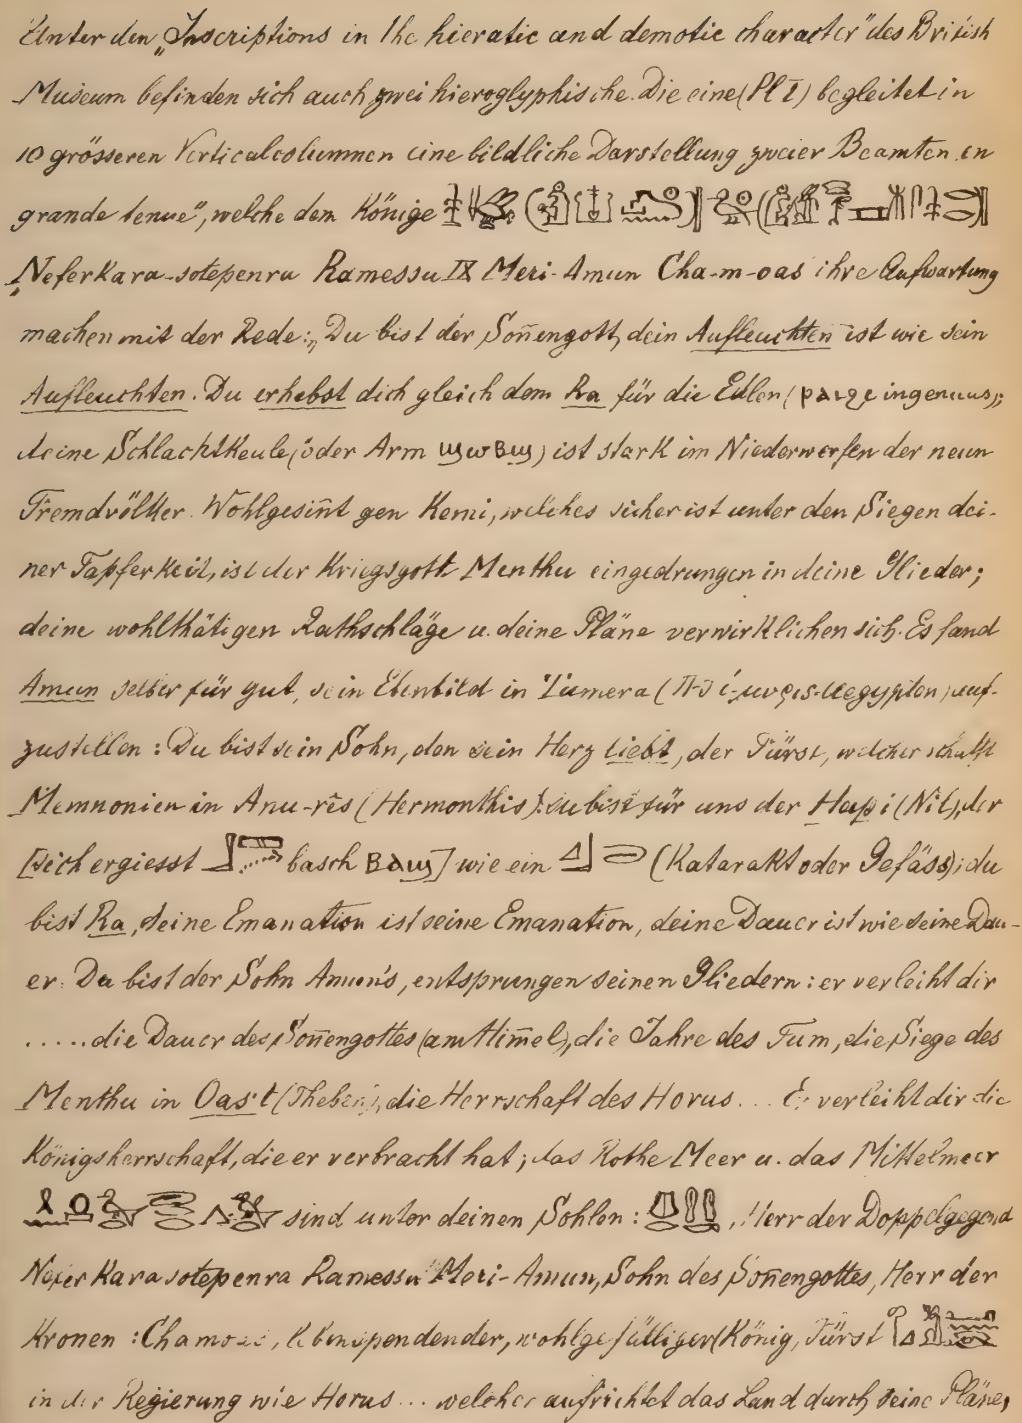 Unter den „Inscriptions in the hieratic and demotic character" des British
Museum befinden sich auch zwei hieroglyphische. Die eine (Pl I) begleitet in
10 grösseren Verticalcolumnen eine bildliche Darstellung zweier Beamten „en
grande tenue", welche dem Könige
„Neferkara-sotepenra Ramessu IX Meri-Amun Cha-m-oas ihre Aufwartung
machen mit der Rede: „Du bist der Soñengott, dein Aufleuchten ist wie sein
Aufleuchten. Du erhebst dich gleich dem Ra für die Edlen ( ingenuus);
deine Schlachtkeule (oder Arm ϣwⲃϣ) ist stark im Niederwerfen der neun
Fremdvölker. Wohlgesiñt gen Kemi, welches sicher ist unter den Siegen dei-
ner Tapferkeit, ist der Kriegsgott Menthu eingedrungen in deine Glieder;
deine wohlthätigen Rathschläge u. deine Pläne verwirklichen sich. Es fand
Amun selber für gut, sein Ebenbild in Tamera ( Aegypten) auf-
zustellen: Du bist sein Sohn, den sein Herz liebt, der Fürst, welcher schafft
Memnonien in Anu-rês (Hermonthis). du bist für uns der Hapi (Nil), der
[sich ergiesst basch ⲃⲁϣ] wie ein (Katarakt oder Gefäss); du
bist Ra, deine Emanation ist seine Emanation, deine Dauer ist wie seine Dau-
er. Du bist der Sohn Amun's, entsprungen seinen Gliedern: er verleiht dir
..... die Dauer des Soñengottes (am Him̄el), die Jahre des Tum, die Siege des
Menthu in Oas't (Theben), die Herrschaft des Horus... Er verleiht dir die
Königsherrschaft, die er verbracht hat; das Rothe Meer u. das Mittelmeer
sind unter deinen Sohlen: , Herr der Doppelgegend
Neferkara sotepenra Ramessu Meri-Amun, Sohn des Soñengottes, Herr der
Kronen: Chamoas, lebenspendender, wohlgefälliger (König, Fürst
in der Regierung wie Horus... welcher aufrichtet das Land durch seine Pläne,